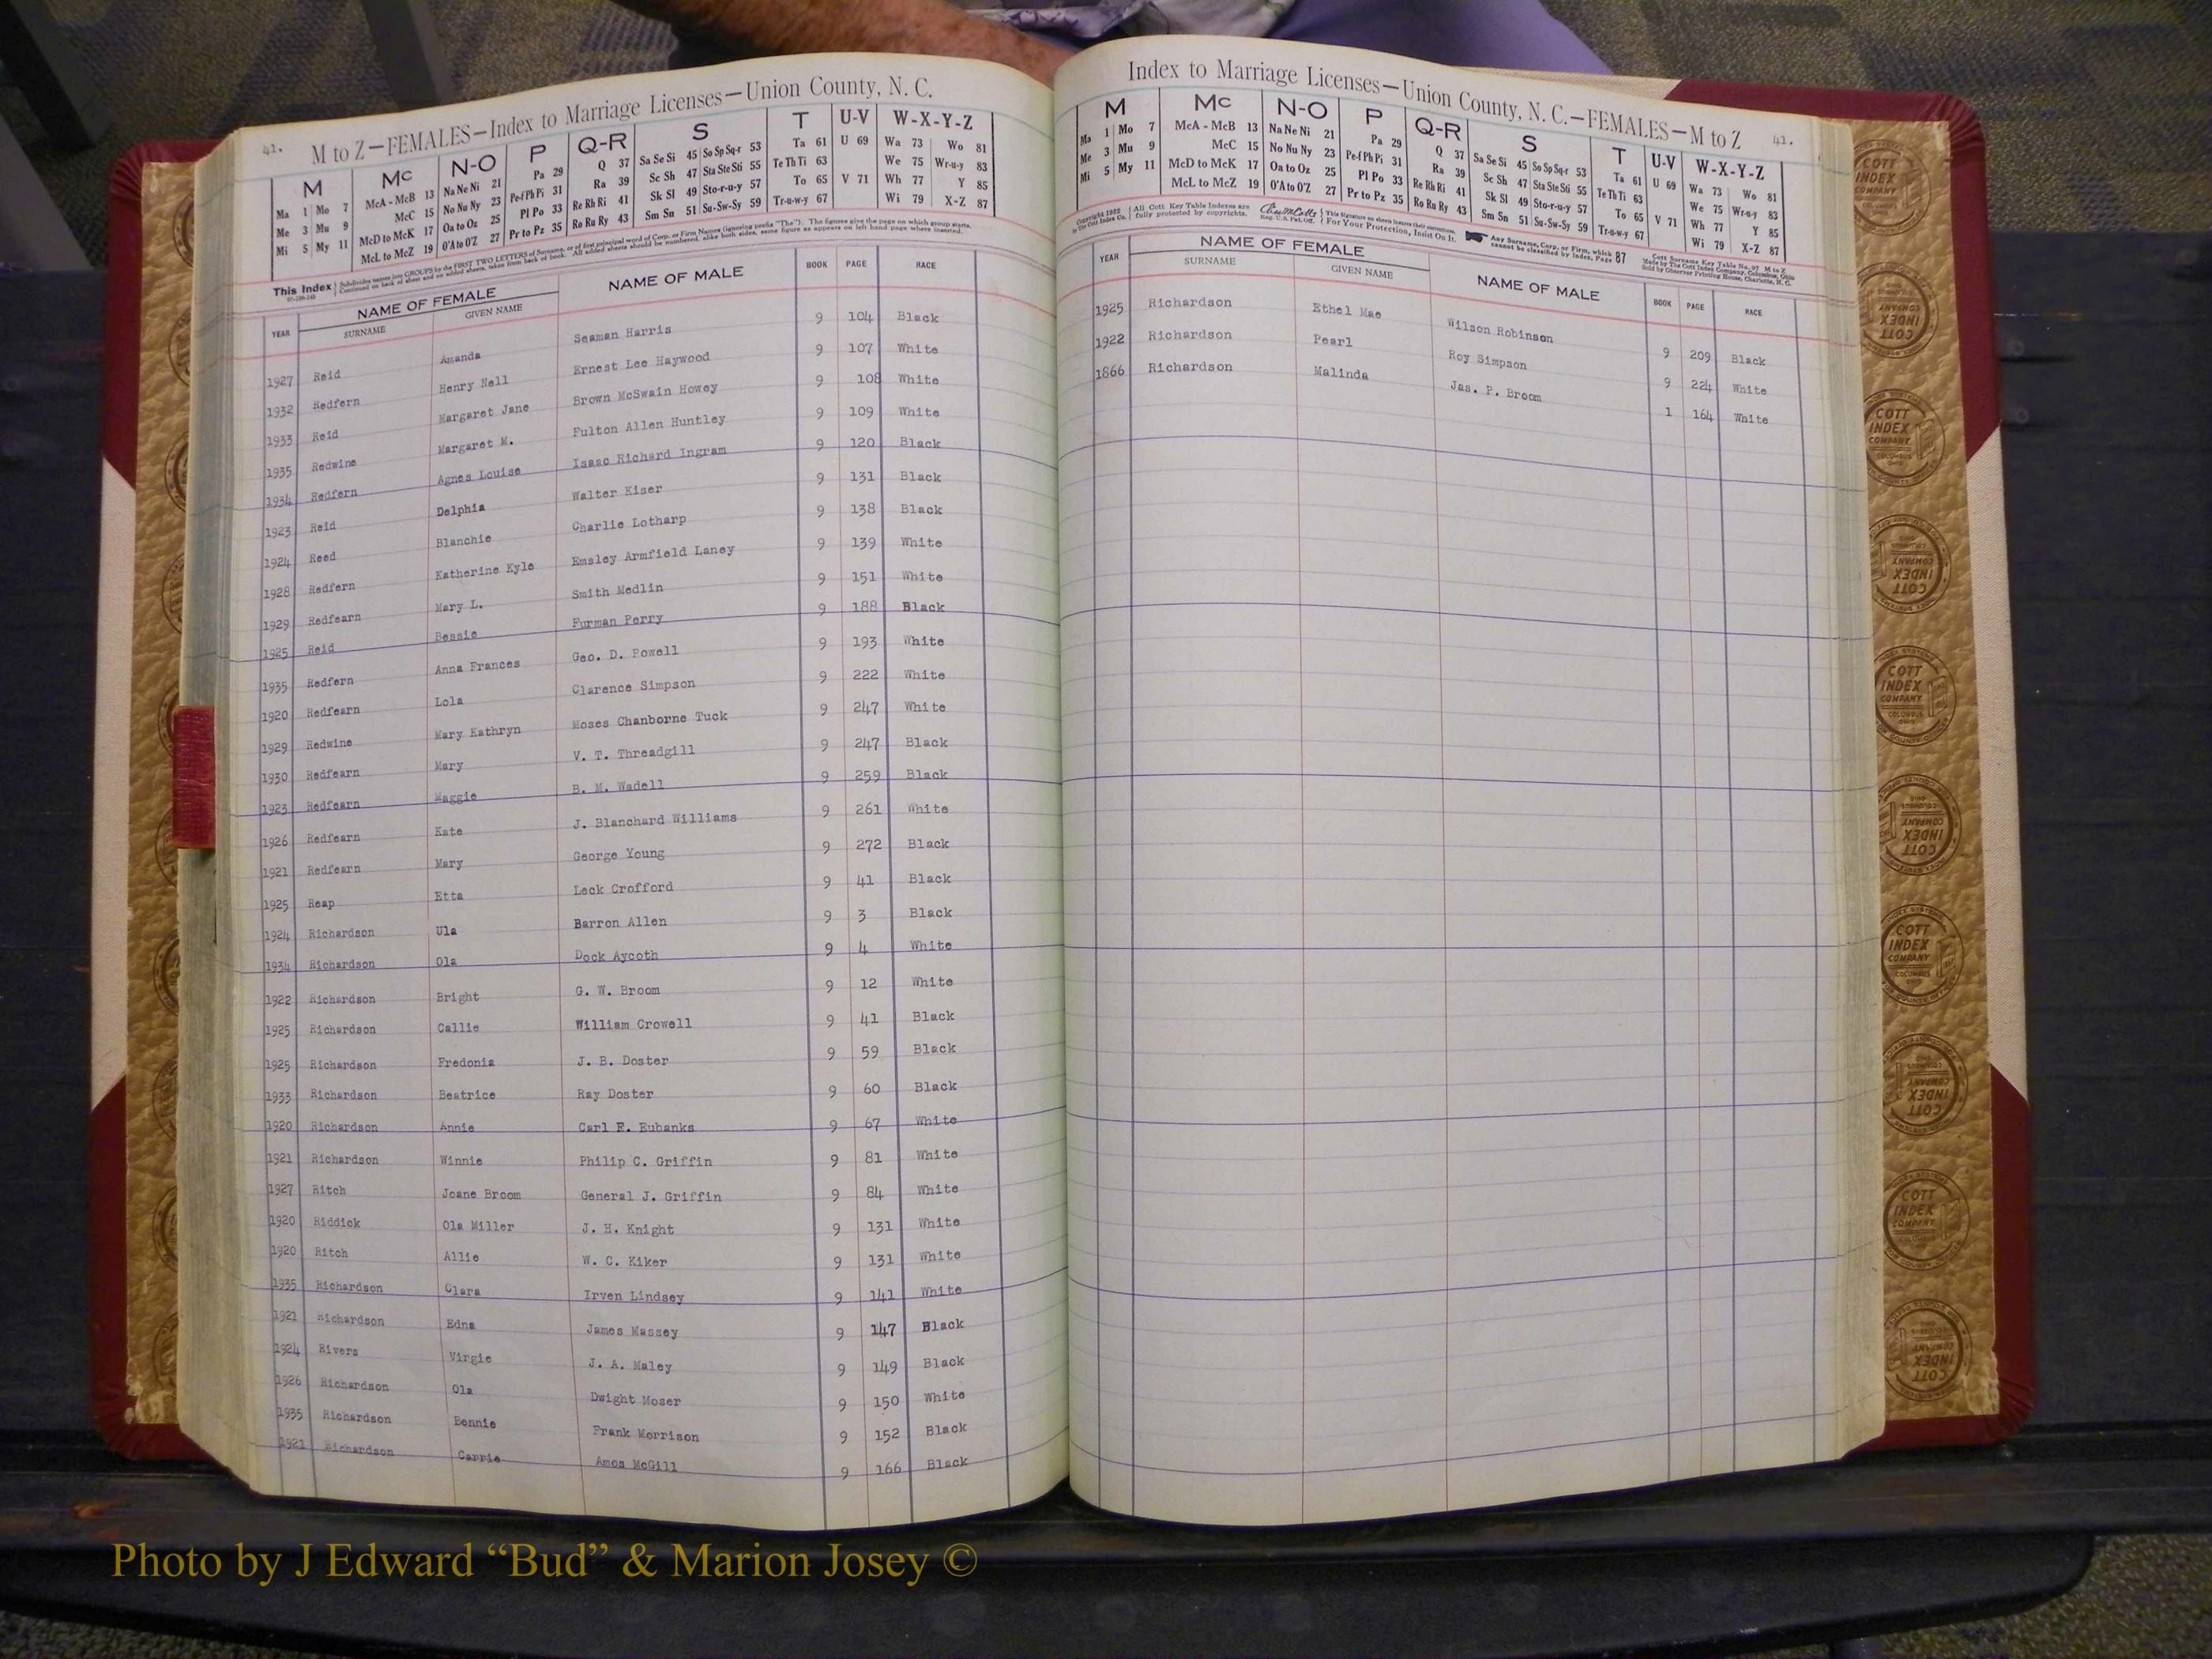 Index to Marriage Licenses—Union County, N. C.
41. M to Z—FEMALES—Index to Marriage Licenses—Union County, N. C.
M Mc N-O P Q-R S T U-V W-X-Y-Z
Ma 1 Mo 7 McA - McB 13 Na Ne Ni 21 Pa 29 Q 37 Sa Se Si 45 So Sp Sq-r 53 Ta 61 U 69 Wa 73 Wo 81
Me 3 Mu 9 McC 15 No Nu Ny 23 Pe-f Ph Pi 31 Ra 39 Sc Sh 47 Sta Ste Sti 55 Te Th Ti 63 We 75 Wr-u-y 83
Mi 5 My 11 McD to McK 17 Oa to Oz 25 Pl Po 33 Re Rh Ri 41 Sk Sl 49 Sto-r-u-y 57 To 65 V 71 Wh 77 Y 85
McL to McZ 19 O'A to O'Z 27 Pr to Pz 35 Ro Ru Ry 43 Sm Sn 51 Su-Sw-Sy 59 Tr-u-w-y 67 Wi 79 X-Z 87
This Index
YEAR NAME OF FEMALE SURNAME GIVEN NAME NAME OF MALE BOOK PAGE RACE
1927 Reid Amanda Seaman Harris 9 104 Black
1932 Redfern Henry Nell Ernest Lee Haywood 9 107 White
1933 Reid Margaret Jane Brown McSwain Howey 9 108 White
1935 Redwine Margaret M. Fulton Allen Huntley 9 109 White
1934 Redfern Agnes Louise Isaac Richard Ingram 9 120 Black
1923 Reid Delphia Walter Kiser 9 131 Black
1924 Reed Blanchie Charlie Lotharp 9 138 Black
1928 Redfern Katherine Kyle Emsley Armfield Laney 9 139 White
1929 Redfearn Mary L. Smith Medlin 9 151 White
1925 Reid Bessie Furman Perry 9 188 Black
1935 Redfern Anna Frances Geo. D. Powell 9 193 White
1920 Redfearn Lola Clarence Simpson 9 222 White
1929 Redwine Mary Kathryn Moses Chanborne Tuck 9 247 White
1930 Redfearn Mary V. T. Threadgill 9 247 Black
1923 Redfearn Maggie B. M. Wadell 9 259 Black
1926 Redfearn Kate J. Blanchard Williams 9 261 White
1921 Redfearn Mary George Young 9 272 Black
1925 Reap Etta Leck Crofford 9 41 Black
1924 Richardson Ula Barron Allen 9 3 Black
1934 Richardson Ola Dock Aycoth 9 4 White
1922 Richardson Bright G. W. Broom 9 12 White
1925 Richardson Callie William Crowell 9 41 Black
1925 Richardson Fredonia J. B. Doster 9 59 Black
1933 Richardson Beatrice Ray Doster 9 60 Black
1920 Richardson Annie Carl E. Eubanks 9 67 White
1921 Richardson Winnie Philip C. Griffin 9 81 White
1927 Ritch Joane Broom General J. Griffin 9 84 White
1920 Riddick Ola Miller J. H. Knight 9 131 White
1920 Ritch Allie W. C. Kiker 9 131 White
1935 Richardson Clara Irven Lindsey 9 141 White
1921 Richardson Edna James Massey 9 147 Black
1924 Rivers Virgie J. A. Maley 9 149 Black
1926 Richardson Ola Dwight Moser 9 150 White
1935 Richardson Bennie Frank Morrison 9 152 Black
1921 Richardson Carrie Amos McGill 9 166 Black
Index to Marriage Licenses—Union County, N. C.—FEMALES—M to Z 41.
M Mc N-O P Q-R S T U-V W-X-Y-Z
Ma 1 Mo 7 McA - McB 13 Na Ne Ni 21 Pa 29 Q 37 Sa Se Si 45 So Sp Sq-r 53 Ta 61 U 69 Wa 73 Wo 81
Me 3 Mu 9 McC 15 No Nu Ny 23 Pe-f Ph Pi 31 Ra 39 Sc Sh 47 Sta Ste Sti 55 Te Th Ti 63 We 75 Wr-u-y 83
Mi 5 My 11 McD to McK 17 Oa to Oz 25 Pl Po 33 Re Rh Ri 41 Sk Sl 49 Sto-r-u-y 57 To 65 V 71 Wh 77 Y 85
McL to McZ 19 O'A to O'Z 27 Pr to Pz 35 Ro Ru Ry 43 Sm Sn 51 Su-Sw-Sy 59 Tr-u-w-y 67 Wi 79 X-Z 87
All Cott Key Table Indexes are fully protected by copyrights.
For Your Protection, Insist On It.
Any Surname, Corp. or Firm, which cannot be classified by Index, Page 87
YEAR NAME OF FEMALE SURNAME GIVEN NAME NAME OF MALE BOOK PAGE RACE
1925 Richardson Ethel Mae Wilson Robinson 9 209 Black
1922 Richardson Pearl Roy Simpson 9 224 White
1866 Richardson Malinda Jas. P. Broom 1 164 White
COTT INDEX COMPANY
Photo by J Edward “Bud” & Marion Josey ©